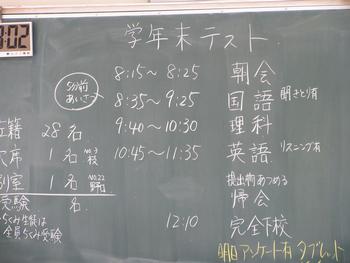 学年末テスト
8:15〜8:25 朝会
5分前
あいさつ
8:35〜9:25 国語 聞きとり有
9:40〜10:30 理科
10:45〜11:35 英語 リスニング有
提出物あつめる
帰会
12:10 完全下校
明日アンケート有 タブレット
在籍 28名
欠席 1名 No.3
別室 1名 No.22
受験 名
全員らくみ受験